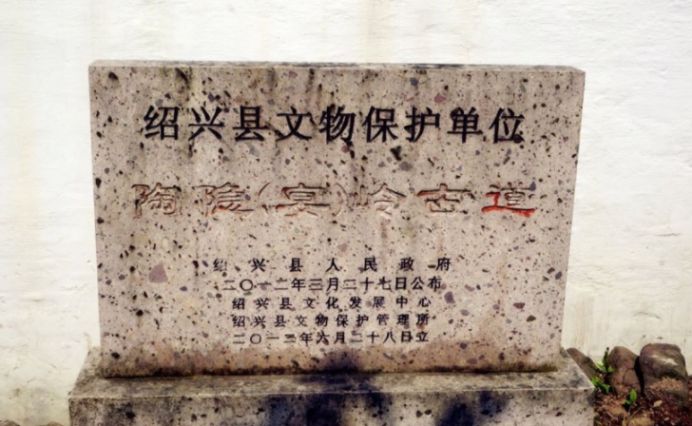 绍兴县文物保护单位
陶隐(宴)岭古道
绍兴县人民政府
二〇一二年三月二十七日公布
绍兴县文化发展中心
绍兴县文物保护管理所
二〇一三年六月二十八日立